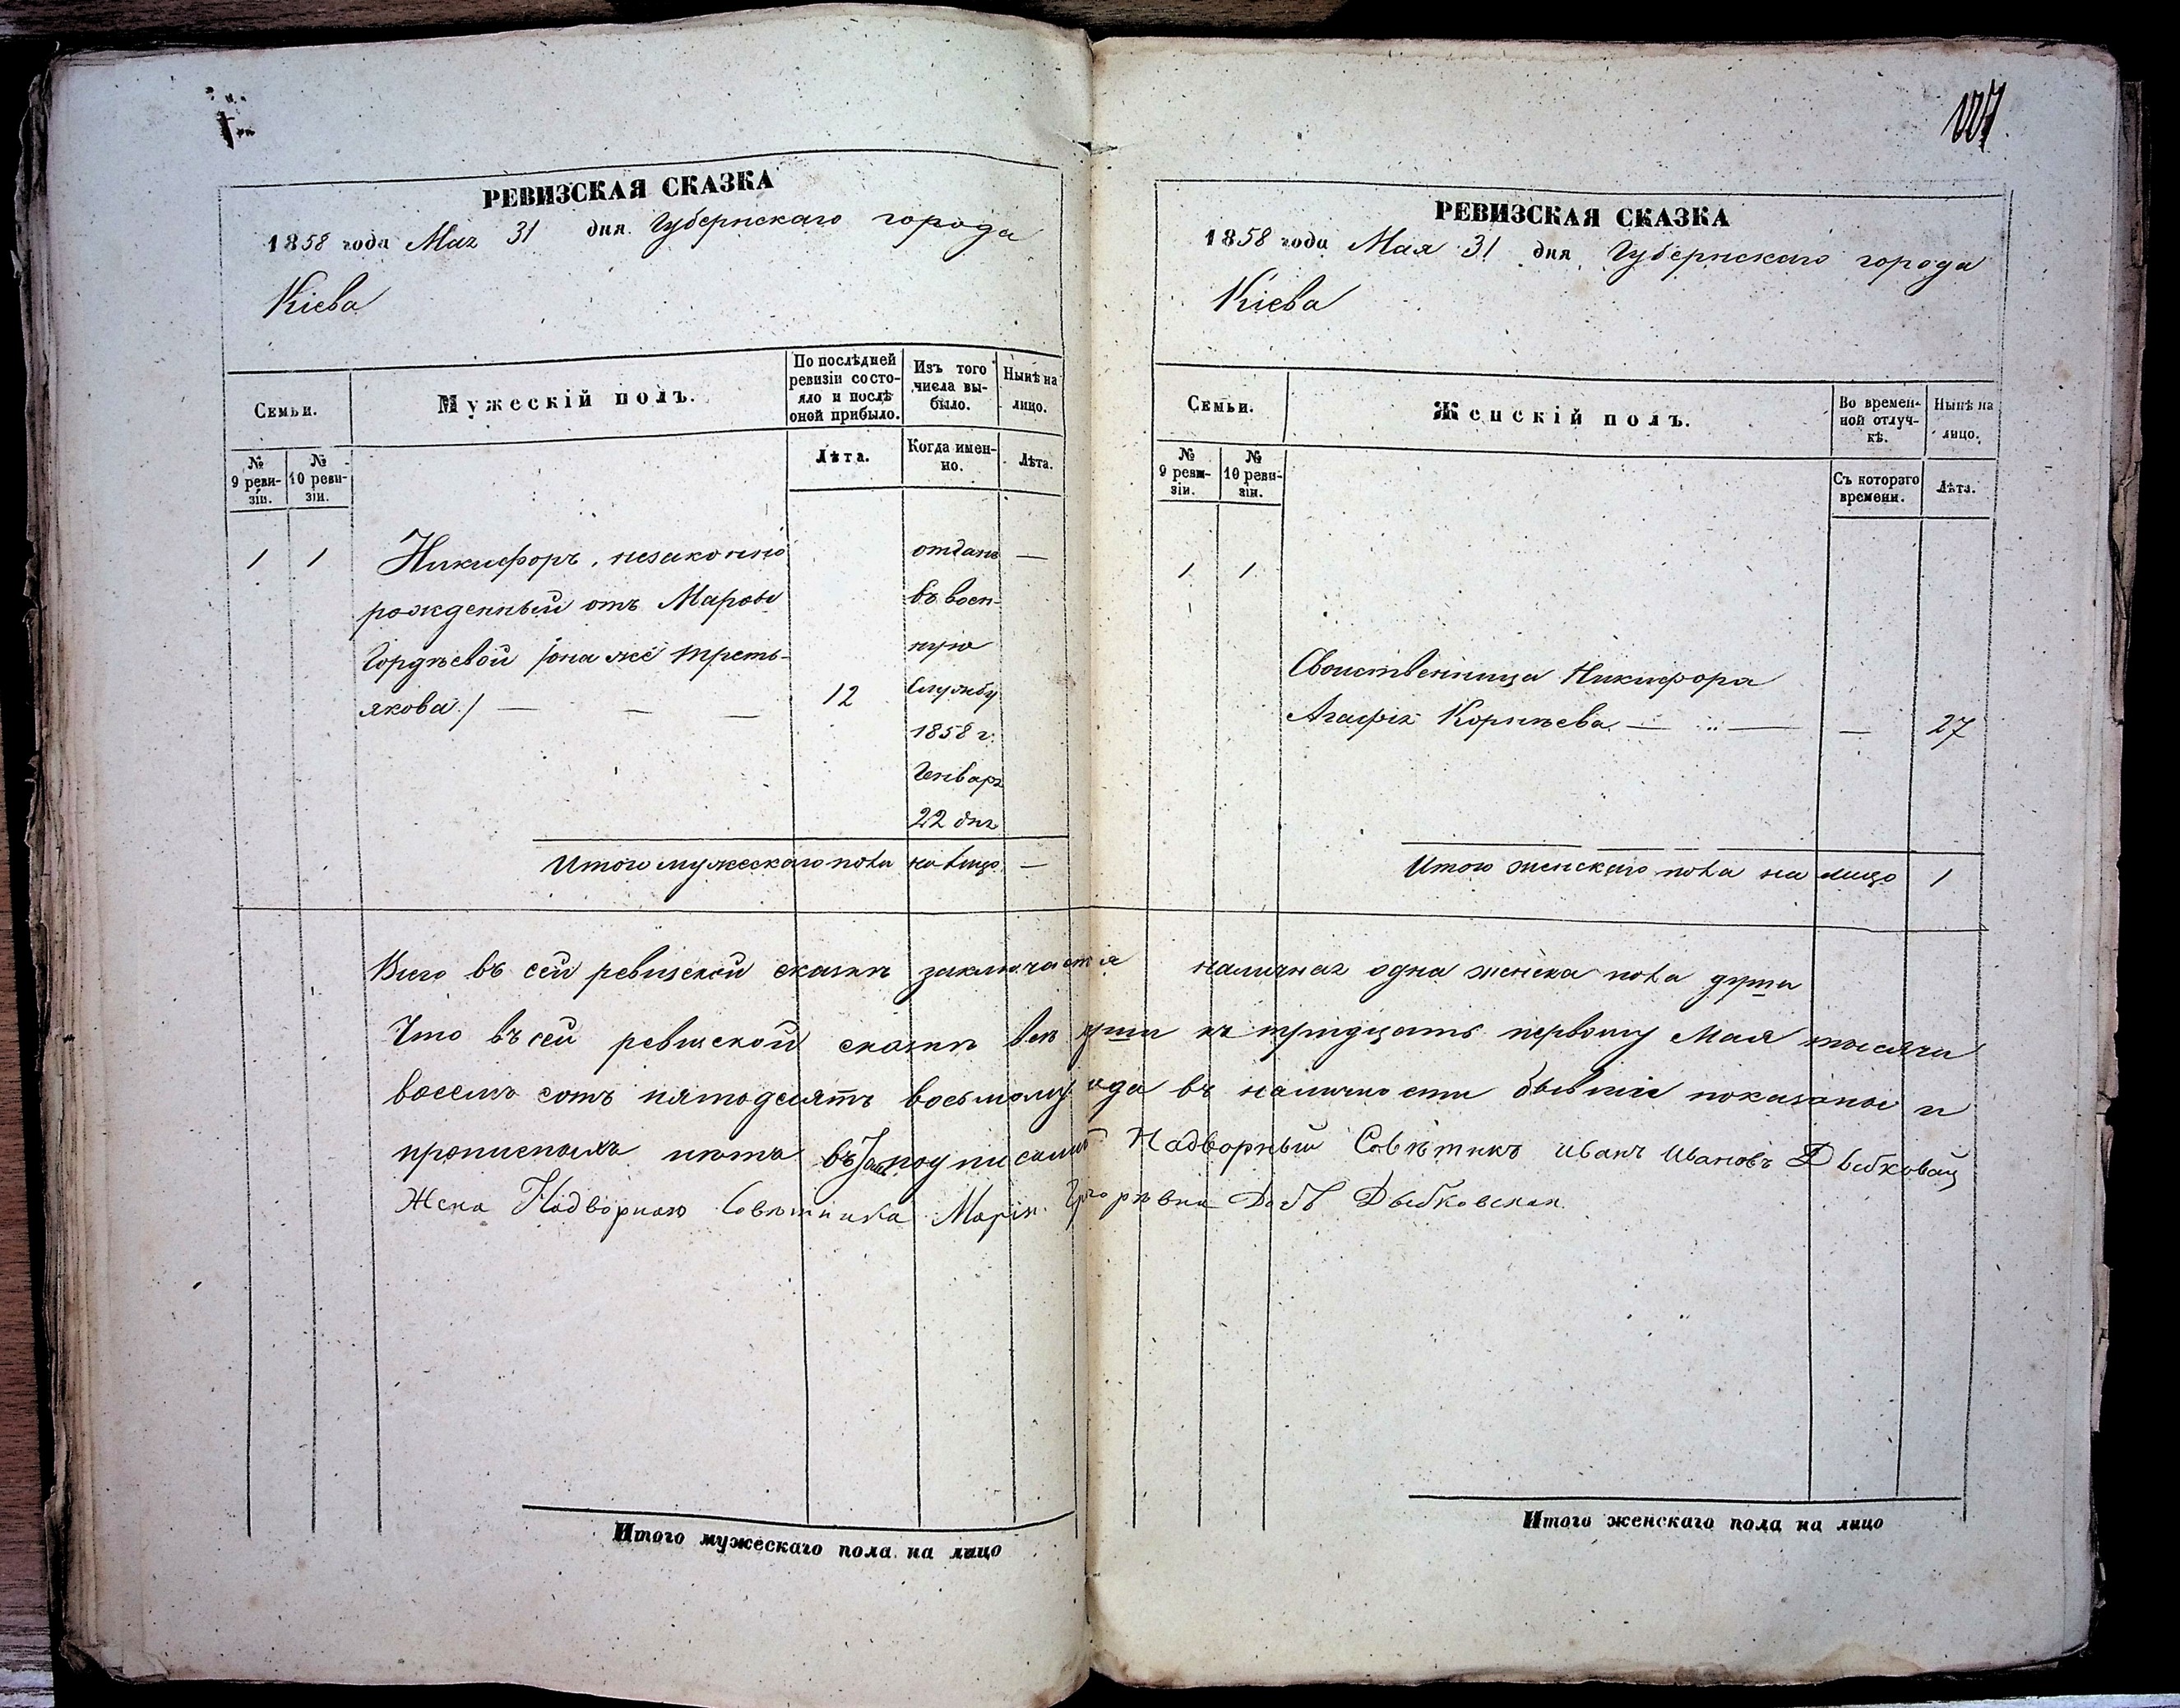 РЕВИЗСКАЯ СКАЗКА
1858 года Мая 31 дня Губернскаго города
Кіева
Семьи.
Мужескій полъ.
По послѣдней ревизіи состо-
яло и послѣ оной прибыло.
Изъ того числа вы-
было.
Нынѣ на лицо.
№ 9 реви-
зіи.
№ 10 реви-
зіи.
Лѣта.
Когда имен-
но.
Лѣта.
1 1 Никифоръ, незаконно отданъ —
рожденный отъ Марфы въ воен-
Гордѣевой /она же Треть- ную
якова/ — — — 12 службу
1858 г.
Генваря
22 дня
Итого мужескаго пола на лицо —
Итого мужескаго пола на лицо
107
РЕВИЗСКАЯ СКАЗКА
1858 года Мая 31 дня Губернскаго города
Кіева
Семьи.
Женскій полъ.
Во времен-
ной отлуч-
кѣ.
Нынѣ на лицо.
№ 9 реви-
зіи.
№ 10 реви-
зіи.
Съ котораго времени.
Лѣта.
1 1
Свойственница Никифора
Агафія Корнѣева — — — 27
Итого женскаго пола на лицо 1
Всего въ сей ревизской сказкѣ заключается наличная одна женска пола душа
Что въ сей ревизской сказкѣ всѣ души къ тридцать первому Мая тысяча
восемь сотъ пятьдесятъ восьмому года въ наличности бывшіе показаны и
прописныхъ нѣтъ въ томъ подписался Надворный Совѣтникъ Иванъ Ивановъ
Жена Надворнаго Совѣтника Марія Григорьевна Дыбковская
Итого женскаго пола на лицо